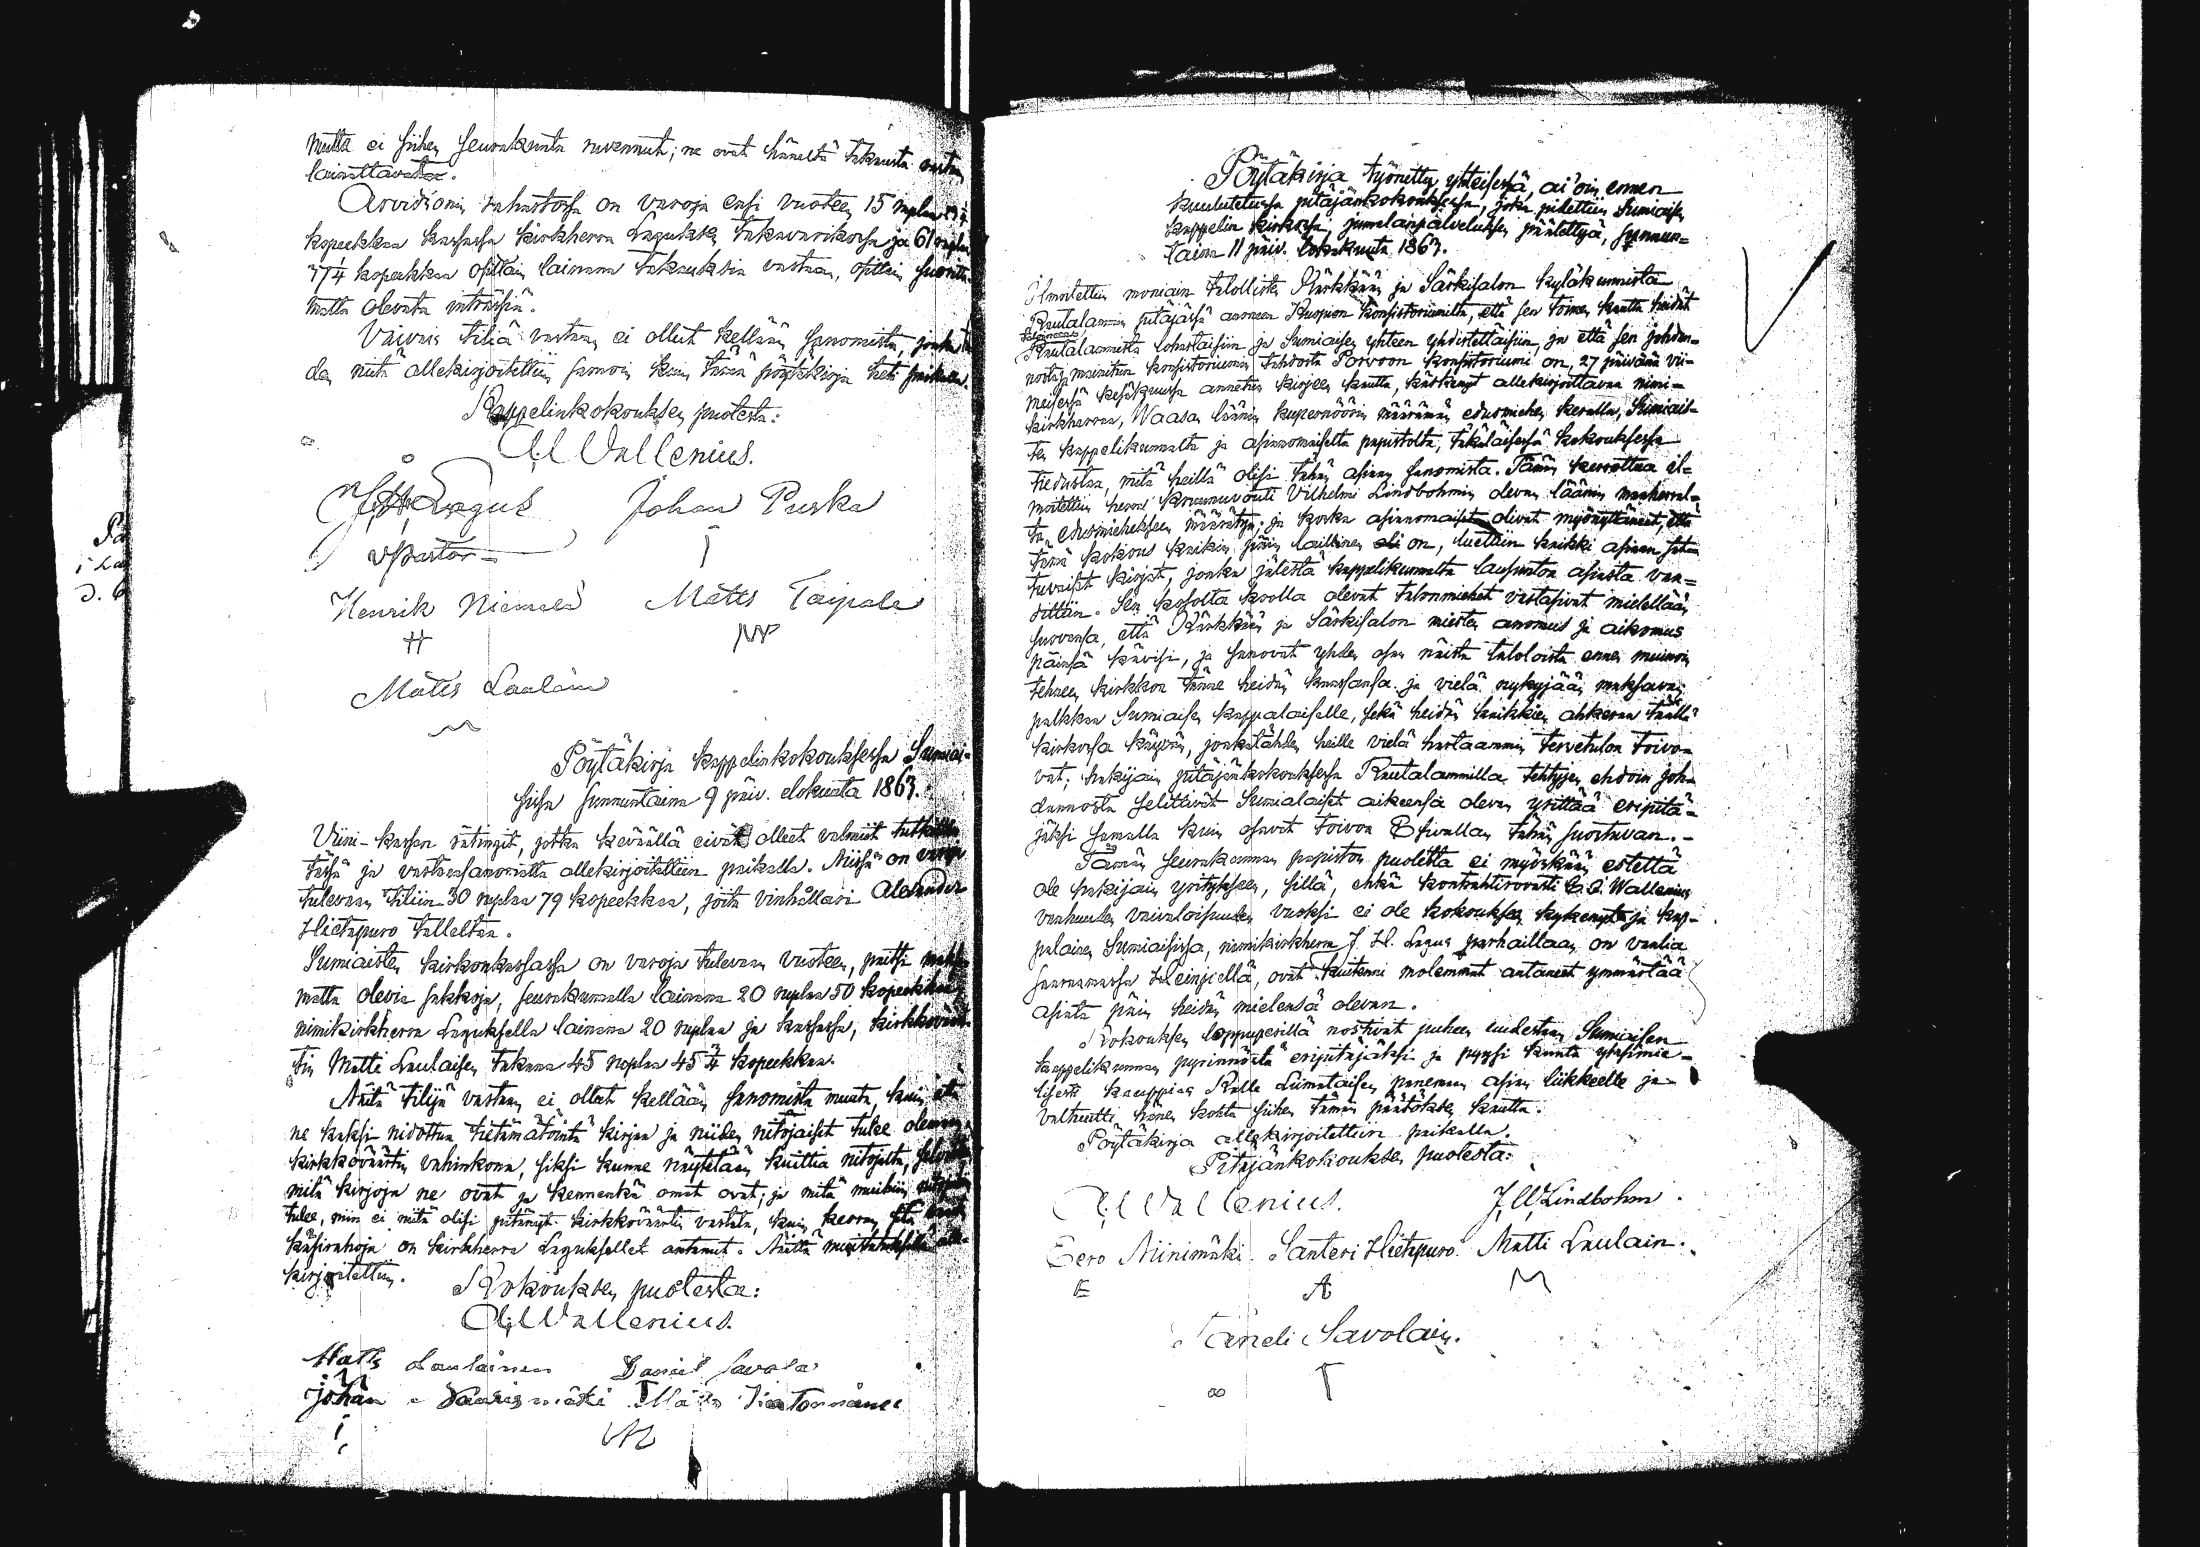 mutta ei siihen seurakunta ruvennut; ne ovat häneltä takausta vastaan
lainattavat.
Arvidsonin rahastossa on varoja ensi vuoteen 15 ruplaa
kopeekkaa kassassa kirkkoherra Laguksen takavarikossa ja 61 ruplaa
77¼ kopeekkaa osittain lainana takauksia vastaan, osittain suoritta-
matta olevata intressiä.
Vaivais tiliä vastaan ei ollut kellään sanomista, jonka
niitä allekirjoitettiin samoin kuin tämä pöytäkirja heti paikalla.
Kappelinkokouksen puolesta:
C. J. Wallenius.
J. H. Lagus Johan Puska
v. Pastor
Henrik Niemelä Matts Taipale
Matts Laulain
Pöytäkirja kappelinkokouksessa Sumiai-
sissa sunnuntaina 9 päiv. elokuuta 1863.
Viini-kassan rätingit, jotka keväällä eivät olleet valmiit tutkittiin
tässä ja vastaansanomatta allekirjoitettiin paikalla. Niissä on varoja
tulevaan tiliin 30 ruplaa 79 kopeekkaa, joita vinhållari Alexander
Hietapuro tallettaa.
Sumiaisten kirkonkassassa on varoja tulevaan vuoteen, paitsi maksa-
matta olevia sakkoja, seurakunnalla lainana 20 ruplaa 50 kopeekkaa,
nimikirkkoherra Laguksella lainana 20 ruplaa ja kassassa, kirkkoväär-
tin Matti Laulaisen takana 45 ruplaa 45¾ kopeekkaa.
Näitä tiliä vastaan ei ollut kellään sanomista muuta, kuin että
ne kaksi nidottua tietämätöintä kirjaa ja niiden nitojaiset tulee olemaan
kirkkoväärtin vahinkona, siksi kunne näytetään kuittia nitojalta,
mitä kirjoja ne ovat ja kennenkä omat ovat; ja mitä muihin
tulee, niin ei mitä olisi pitänyt kirkkoväärtin vastata, kuin kerran
käsirahoja on kirkkoherra Laguksellet antanut. Näillä muistutuksilla alle-
kirjoitettiin.
Kokouksen puolesta:
C. J. Wallenius.
Matts Laulainen Daniel Savola
Johan Matts
Pöytäkirja työnetty yhteisessä, ai'oin ennen
kuulutetussa pitäjänkokouksessa, joka pidettiin Sumiaisten
kappelin kirkossa, jumalanpalveluksen päätettyä, sunnun-
taina 11 päiv. lokakuuta 1863.
Ilmoitettiin moniain talollisten Kärkkään ja Särkisalon kyläkunnista
Rautalammin pitäjässä anoneen Kuopion Konsistoriumilta, että sen toimen kautta heidät
Rautalammista lohastaisiin ja Sumiaisiin yhteen yhdistettäisiin, ja että sen johdan-
nosta mainitun konsistoriumin tahdosta Porvoon konsistoriumi on, 27 päivänä vii-
meisessä kesäkuussa annetun kirjeen kautta, käskenyt allekirjoittavan nimi-
kirkkoherran, Waasan läänin kupernöörin määräämän edusmiehen keralla, Sumiais-
ten kappelikunnalta ja asianomaiselta papistolta, täkäläisessä kokouksessa
tiedustaa, mitä heillä olisi tähän asiaan sanomista. Tämän kerrottua il-
moitettiin herra Kruununvouti Vilhelmi Lindbohmin olevan läänin maaherral-
ta edusmieheksensä määrätty; ja koska asianomaiset olivat myönyttäneet, että
tämä kokous kaikin päin laillinen on, luettiin kaikki asiaan sat-
tuvaiset kirjat, jonka jälestä kappelikunnalta lausuntoa asiasta vaa-
dittiin. Sen kosolta koolla olevat talonmiehet vastasivat mielellään
suovansa, että Kärkkään ja Särkisalon miesten anomus ja aikomus
päinsä kävisi, ja sanovat yhden osan näistä taloloista ennen muinoin
tehneen kirkkoa tänne heidän kanssansa ja vielä nykyjään maksavan
palkkaa Sumiaisten kappalaiselle, sekä heidän kaikkien ahkeraan täällä
kirkossa käyvän, jonkatähden heille vielä hartaammin tervetulon toivo-
vat; hakijain pitäjänkokouksessa Rautalammilla tehtyjen ehdoin joh-
dannosta selittivät Sumialaiset aikeensa olevan yrittää eripitä-
jäksi samalla kuin osavat toivoa Esivallan tähän suostuvan.-
Tämän seurakunnan papiston puolelta ei myöskään estettä
ole hakijain yritykseen, sillä, ehkä kontrahtirovasti C. J. Wallenius
vanhuuden vaivaloisuuden vuoksi ei ole kokouksen kykenyt ja kap-
palainen Sumiaisissa, nimikirkkoherra J. H. Lagus parhaillaan on vaalia
saarnaamassa Heinjoella, ovat kuitenni molemmat antaneet ymmärtää
asiata päin heidän mielensä olevan.
Kokouksen loppuperillä nostivat puheen uudestaan Sumiaisen
kappelikunnan pyrinnöstä eripitäjäksi ja pyysi kunta yksimie-
lisesti kauppias Kalle Liimataisen panemaan asian liikkeelle ja
valtuutti hänen kohta siihen tämän päätöksen kautta.
Pöytäkirja allekirjoitettiin paikalla.
Pitäjänkokouksen puolesta:
C. J. Wallenius. J. W. Lindbohm.
Eero Niinimäki. Santeri Hietapuro. Matti Laulain.
E A M
Taneli Savolain.
T